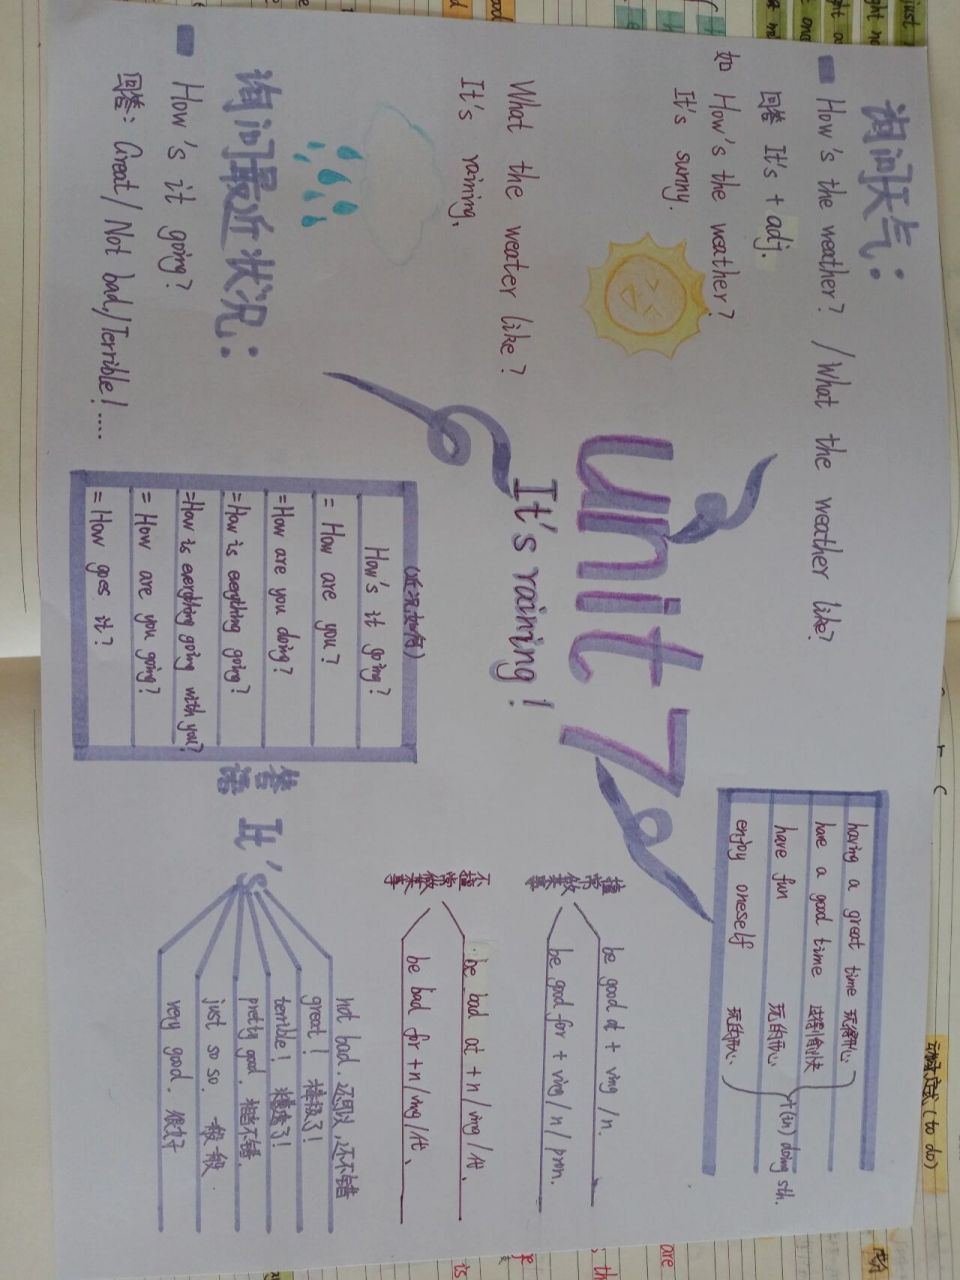 询问天气：
How's the weather? /What the weather like?
回答 It's + adj.
如 How's the weather?
It's sunny.
What the weater like?
It's raining.
询问最近状况：
How's it going?
回答：Great/Not bad/Terrible!.....
unit 7
It's raining!
(近况如何)
How's it going?
= How are you?
=How are you doing?
=How is everything going?
=How is everything going with you?
= How are you going?
= How goes it?
having a great time 玩得开心
have a good time
have fun 玩的开心
enjoy oneself 玩的开心
+(in) doing sth.
擅常做某事
be good at + ving /n.
be good for + ving/n/pron.
不擅常做某事
be bad at +n/ving/代、
be bad for +n/ving/代、
答语 It's
not bad. 还可以，还不错
great! 棒极了!
terrible! 糟糕了!
pretty good. 相当不错.
just so so. 一般般
very good. 很好
(to do)